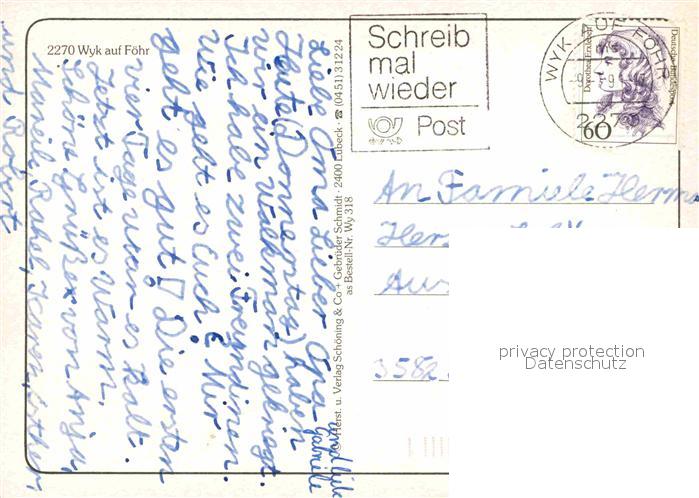 2270 Wyk auf Föhr
Liebe Oma Lieber Opa
Heute (Donnerstag) haben
wir ein Walkman gekriegt.
Ich habe zwei Freundinen.
Wie geht es Euch? Mir
geht es gut! Die ersten
vier Tage war es kalt.
Jetzt ist es warm.
Schöne Grüße von Anja,
Mareile, Rahel, Karen, Esther,
und Robert
und
Gabriele
© Herst. u. Verlag Schöning & Co + Gebrüder Schmidt · 2400 Lübeck · ☎ (0451) 31224
as Bestell-Nr. Wy 318
Schreib
mal
wieder
Post
WYK AUF FÖHR
2270
60
Deutsche Bundespost
An Familie Herm
Her
Aus
3582
privacy protection
Datenschutz